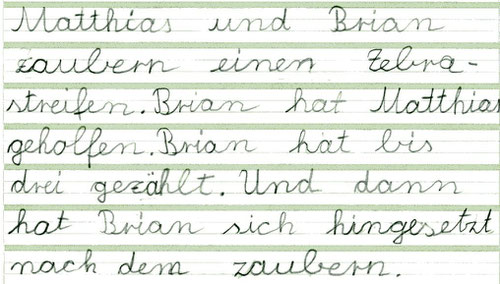 Matthias und Brian
zaubern einen Zebra-
streifen. Brian hat Matthias
geholfen. Brian hat bis
drei gezählt. Und dann
hat Brian sich hingesetzt
nach dem zaubern.